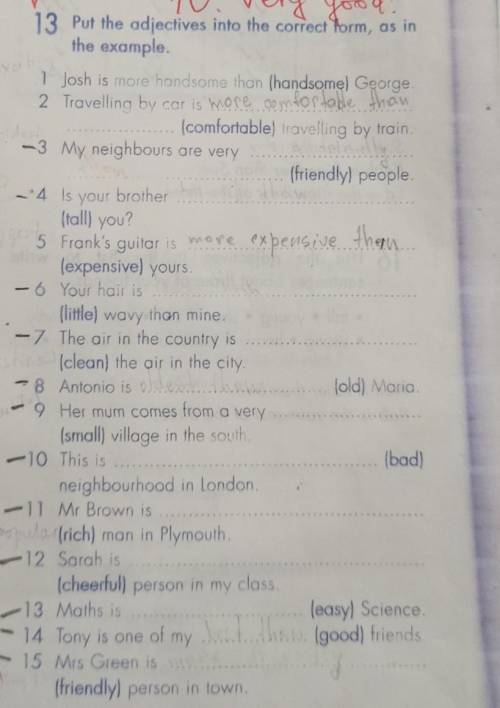 10. Very good!
13 Put the adjectives into the correct form, as in
the example.
1 Josh is more handsome than (handsome) George.
2 Travelling by car is more comfortable than
(comfortable) travelling by train.
3 My neighbours are very
(friendly) people.
4 Is your brother
(tall) you?
5 Frank's guitar is more expensive than
(expensive) yours.
6 Your hair is
(little) wavy than mine.
7 The air in the country is
(clean) the air in the city.
8 Antonio is (old) Maria.
9 Her mum comes from a very
(small) village in the south.
10 This is (bad)
neighbourhood in London.
11 Mr Brown is
(rich) man in Plymouth.
12 Sarah is
(cheerful) person in my class.
13 Maths is (easy) Science.
14 Tony is one of my (good) friends.
15 Mrs Green is
(friendly) person in town.